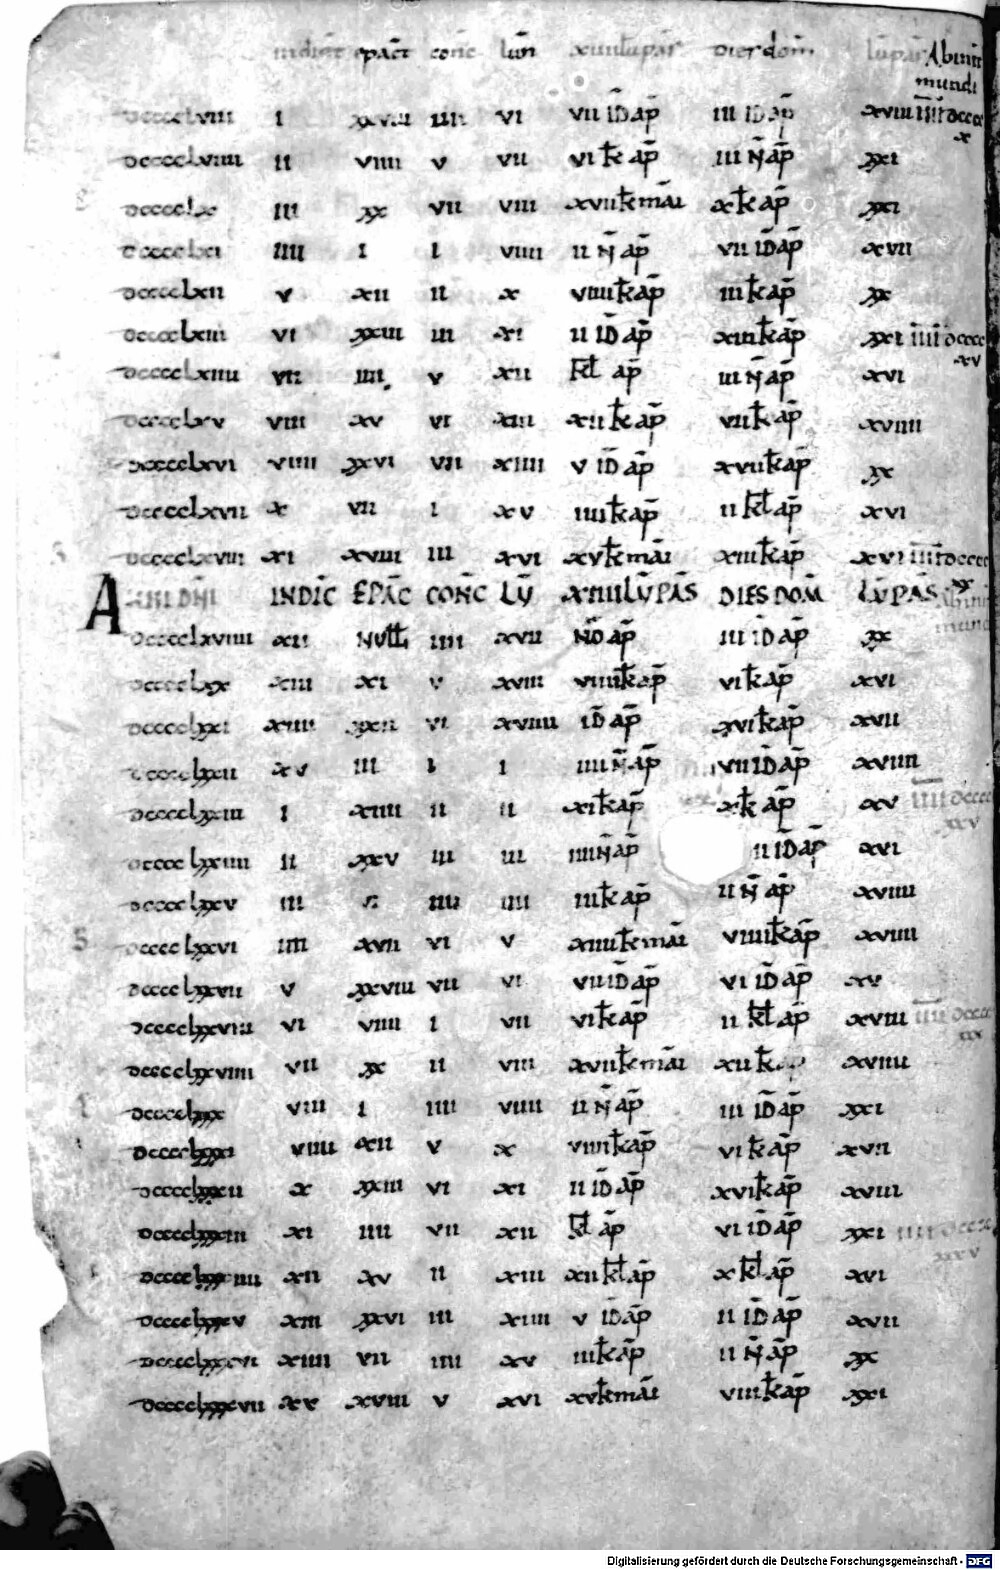 indict epact conc lun xiiii lu pas dies dom lu pas Ab init
mundi
dcccclviii i xxviii iiii vi vii id ap iii id ap xviii iiii dcccc
x
dcccclviiii ii viiii v vii vi k ap iii n ap xxi
dcccclx iii xx vii viii xvii k mai x k ap xxi
dcccclxi iiii i i viiii ii n ap vii id ap xvii
dcccclxii v xii ii x viiii k ap iii k ap xx
dcccclxiii vi xxiii iii xi ii id ap xiiii k ap xxi iiii dcccc
xv
dcccclxiiii vii iiii v xii kl ap iii n ap xvi
dcccclxv viii xv vi xiii xii k ap vii k ap xviiii
dcccclxvi viiii xxvi vii xiiii v id ap xvii k ap xx
dcccclxvii x vii i xv iiii k ap ii kl ap xvi
dcccclxviii xi xviii iii xvi xv k mai xiiii k ap xvi iiii dcccc
xx
ANNI DNI INDIC EPAC CONC LU XIIII LU PAS DIES DOM LU PAS Ab init
mundi
dcccclxviiii xii NULL iiii xvii NO ap iii id ap xx
dcccclxx xiii xi v xviii viiii k ap vi k ap xvi
dcccclxxi xiiii xxii vi xviiii id ap xvi k ap xvii
dcccclxxii xv iii i i iiii n ap vii id ap xviiii
dcccclxxiii i xiiii ii ii xi k ap x k ap xv iiii dcccc
xxv
dcccclxxiiii ii xxv iii iii iiii n ap ii id ap xvi
dcccclxxv iii vi iiii iiii iii k ap ii n ap xviiii
dcccclxxvi iiii xvii vi v xiiii k mai viiii k ap xviiii
dcccclxxvii v xxviii vii vi vii id ap vi id ap xv
dcccclxxviii vi viiii i vii vi k ap ii kl ap xviii iiii dcccc
xxx
dcccclxxviiii vii xx ii viii xvii k mai xii k ap xviiii
dcccclxxx viii i iiii viiii ii n ap iii id ap xxi
dcccclxxxi viiii xii v x viiii k ap vi k ap xvii
dcccclxxxii x xxiii vi xi ii id ap xvi k ap xviii
dcccclxxxiii xi iiii vii xii kl ap vi id ap xxi iiii dcccc
xxxv
dcccclxxxiiii xii xv ii xiii xii kl ap x kl ap xvi
dcccclxxxv xiii xxvi iii xiiii v id ap ii id ap xvii
dcccclxxxvi xiiii vii iiii xv iii k ap ii n ap xx
dcccclxxxvii xv xviii v xvi xv k mai viii k ap xxi
Digitalisierung gefördert durch die Deutsche Forschungsgemeinschaft - DFG